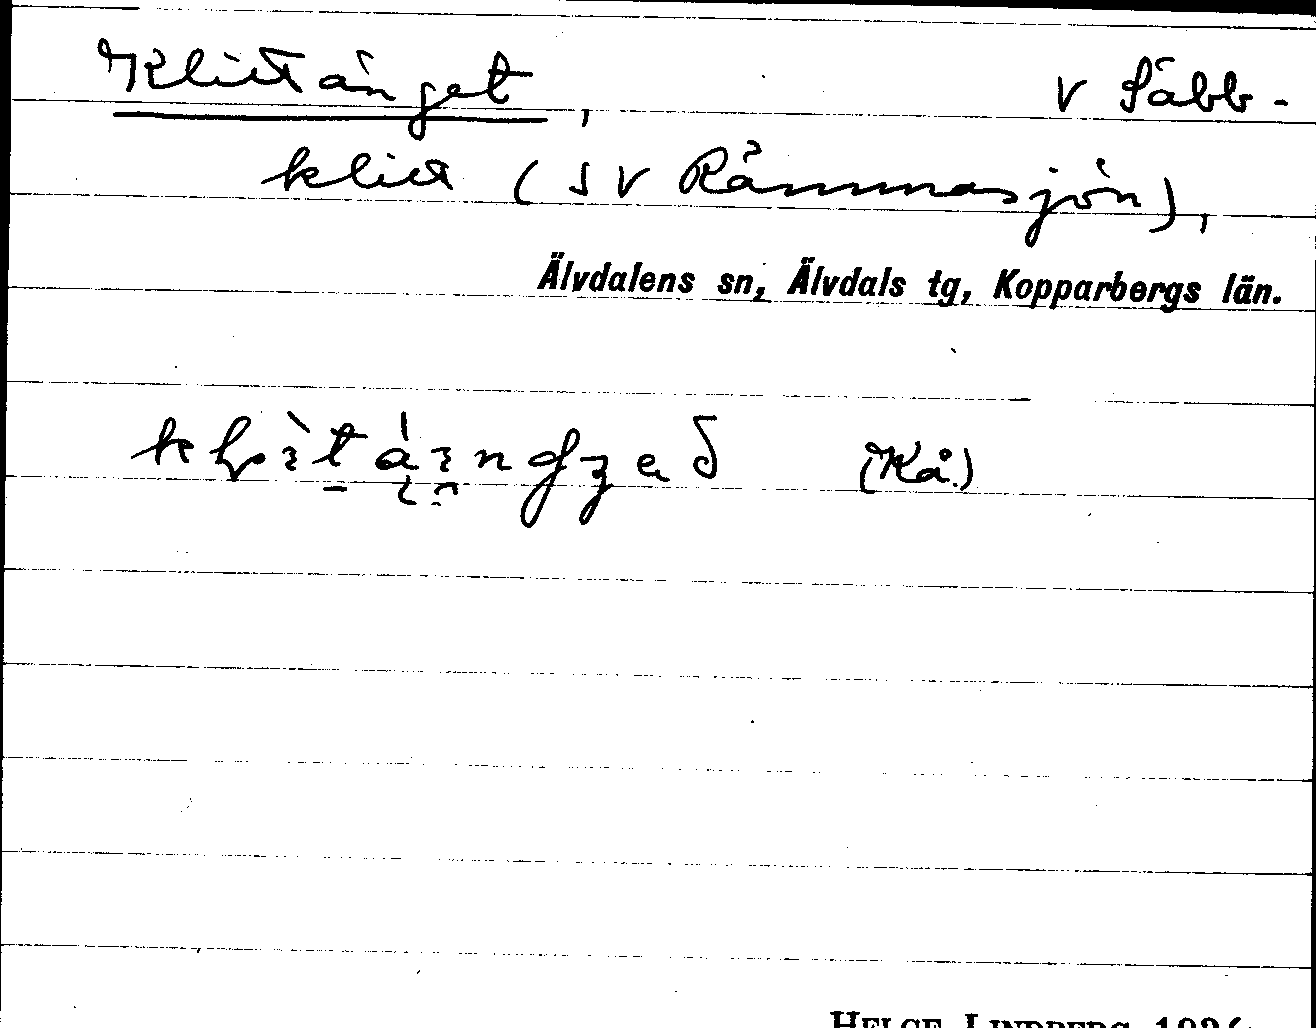 Klittänget, v Säbb-
klitt (SV Rämmasjön),
Älvdalens sn, Älvdals tg, Kopparbergs län.
(Kå.)
HELGE LINDBERG 1936